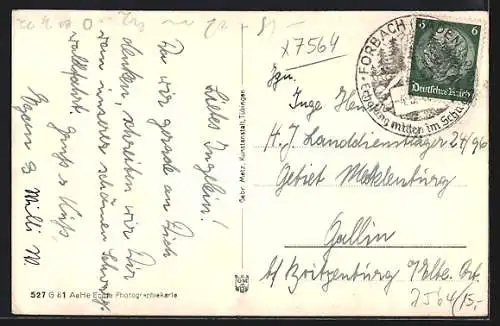 Liebes Ingelein!
Da wir gerade an Dich
denken, schreiben wir Dir
von unserer schönen Schwarz-
waldfahrt. Gruß u. Kuß,
Egon & Willi W.
Gebr. Metz, Kunstanstalt, Tübingen
527 G 61 AeHe Echte Photographiekarte
x 7564
FORBACH (BADEN)
mitten im
6 6
Deutsches Reich
Jgn.
Inge
H.J. Landdienstlager 24/96
Gebiet Mecklenburg
Gallin
b/ Boitzenburg / Elbe.
7564 /15,-